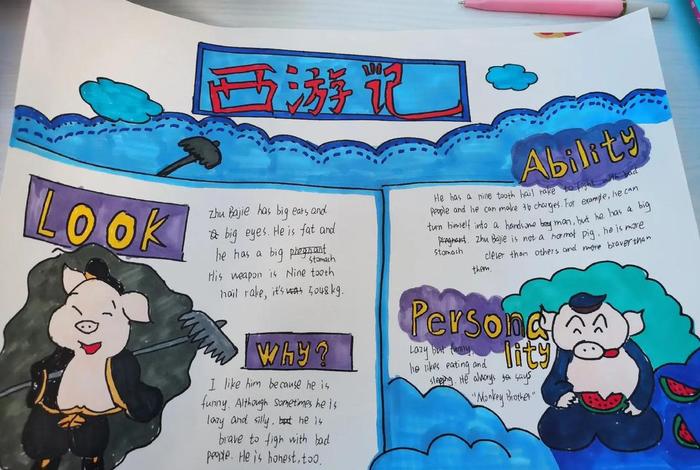 西游记
LOOK
Zhu Bajie has big ears and
big eyes. He is fat and
he has a big pregnant
stomach
His weapon is Nine tooth
nail rake, it's was 5048kg.
WHY?
I like him because he is
funny. Although sometimes he is
lazy and silly, but he is
brave to figh with bad
people. He is honest, too.
Ability
He has a nine tooth nail rake to fight with bad
people and he can make 36 charges. For example, he can
turn himself into a handsome boy man, but he has a big
pregnant Zhu Bajie is not a normol pig, he is more
stomach cleler than others and more braver than
them.
Persona
lity
Lazy but funny,
he likes eating and
sleeping. He always sa says
"Monkey Brother"